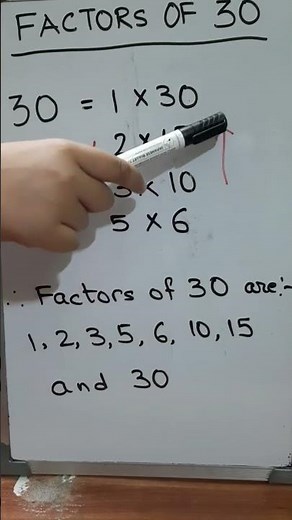 FACTORS OF 30
30 = 1 X 30
2 X
3 X 10
5 X 6
∴ Factors of 30 are:-
1, 2, 3, 5, 6, 10, 15
and 30